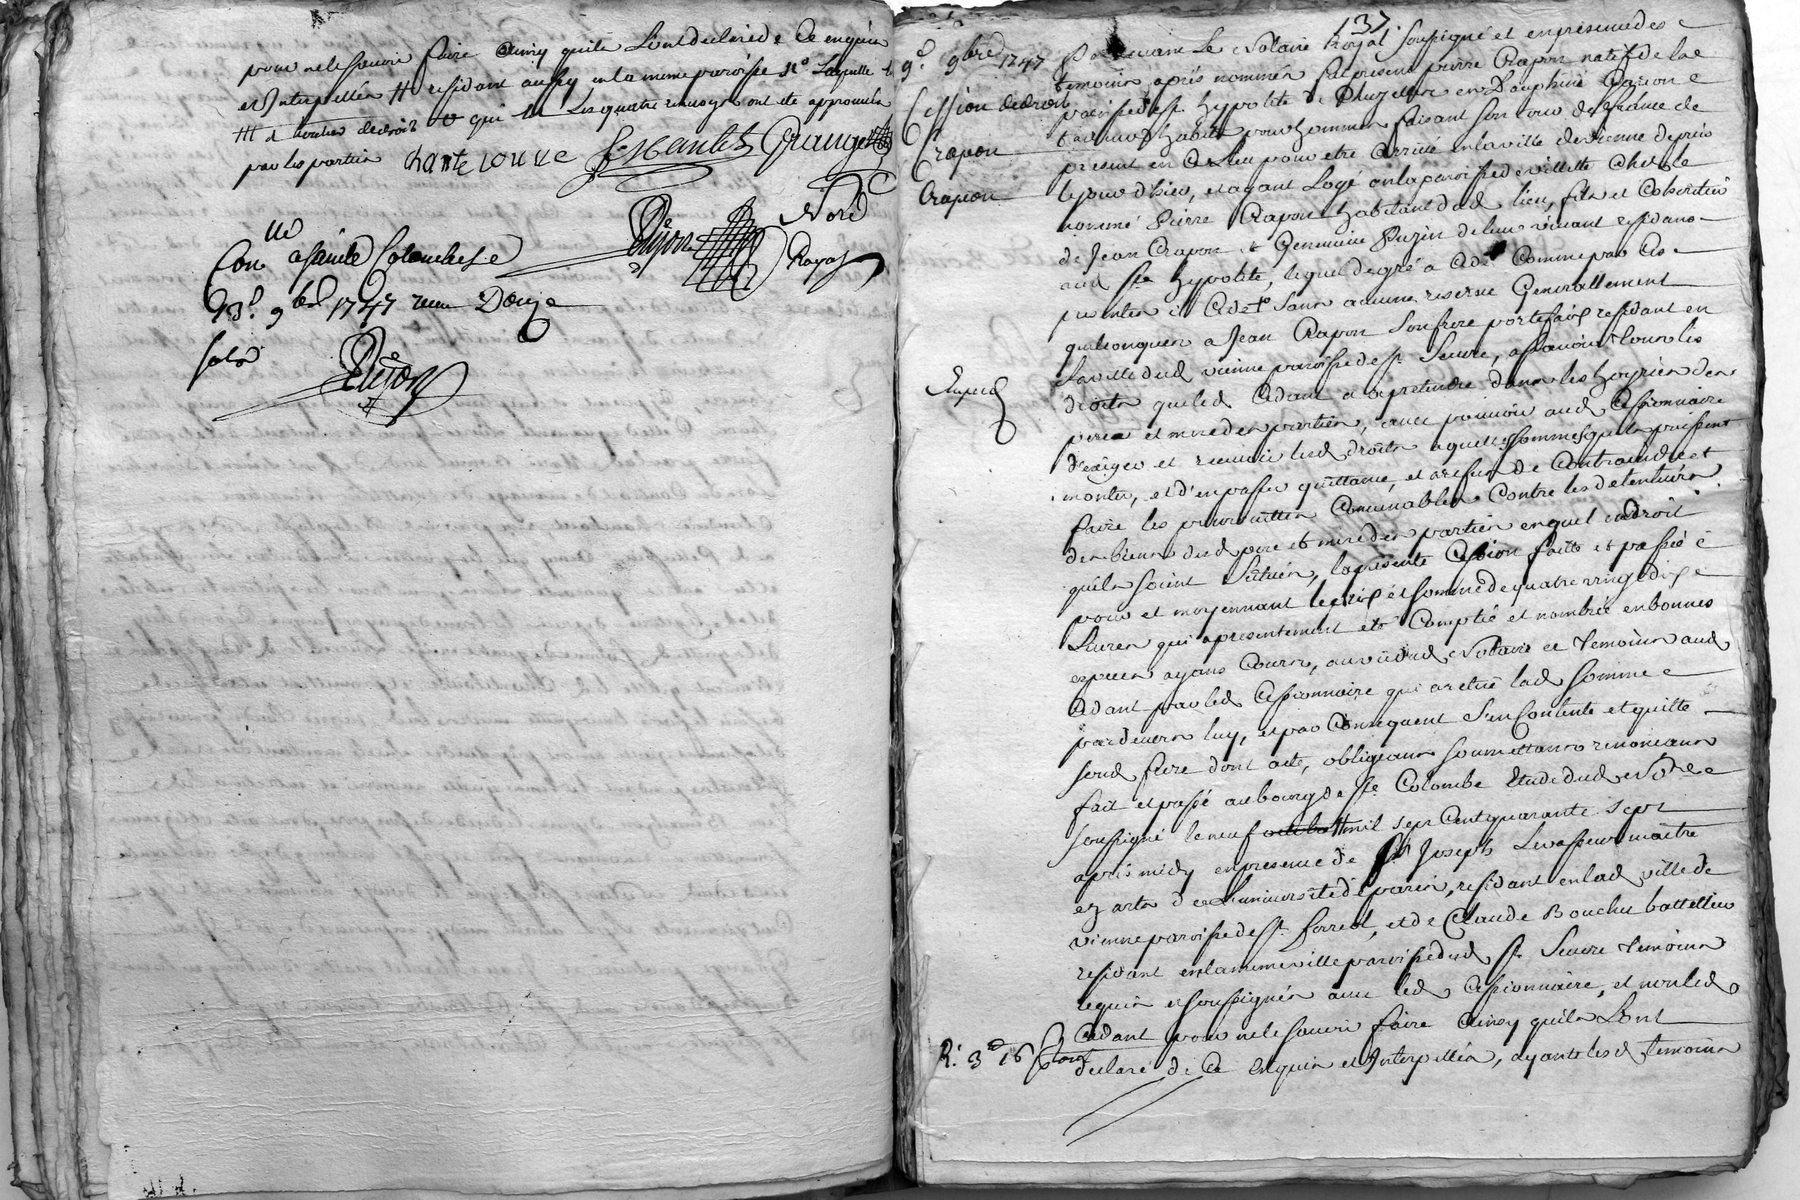 pour ne le scavoir faire Ainsy quils L'ont declaré de ce enquis
et Interpellés # residant aussy en la meme paroisse
# d toutes dedroits qui Les quatre renvoys ont ete approuvés
par les parties chante louve Granger
Nore
Dejon
Royal
Con.lle a sainte Colombe Le
13.e 9bre 1747 reçu Douze
sols
Dejon
137
9.e 9bre 1747
Cession dedroit
Crapon
Crapon
Expedié
R. 3
Pardevant Le Notaire Royal soussigné et en presence des
temoins après nommés fut present pierre Crapon natif de la
paroisse de st hypolite de en Dauphiné Garçon
present en Ce Lieu pour etre arrivé en la ville de vienne depuis
le jour d'hier, et ayant Logé en la paroisse de villette Chez le
nommé Pierre Crapon habitant dud lieu, fils et Coheritier
de Jean Crapon et Germaine Puzin de leur vivant residans
aud st hypolite, lequel de gré a Cedé Comme par Ces
presentes il Cede sans aucune reserve Generallement
quelconques a Jean Crapon Son frere portefaix residant en
La ville dud vienne paroisse de st Severe, assavoir tous les
droits que led Cedant a a pretendre dans les hoyries des
pere et mere des parties, avec pouvoir aud Cessionnaire
d'exiger et recevoir lesd droits a quelles sommes qu'ils puissent
monter, et d'en passer quittance, et a refus de Contraindre et
faire les poursuittes Convenables Contre les detenteurs
des biens desd pere et mere des parties en quel endroit
qu'ils soient Situés, la presente Cession faitte et passée
pour et moyennant le prix et somme de quatre vingt dix
Livres qui a presentement eté Comptée et nombrée en bonnes
especes ayans Cours, au vû dud Notaire et temoins aud
Cedant par led Cessionnaire qui a retiré lad somme
pardevers luy, et par Consequent S'en Contente et quitte
sond frere dont acte, obligeans soumettans renonceans
fait et passé au bourg de ste Colombe Etude dud Notre
soussigné le neuf mil sept Cent quarante sept
après midy en presence de Sr Joseph Levasseur maitre
ez arts de L'université de paris, residant en lad ville de
vienne paroisse de st ferreol, et de Claude Bouchu battellier
residant en la meme ville paroisse dud st Severe temoins
requis et soussignés avec led Cessionnaire, et non led
Cedant pour ne le scavoir faire Ainsy quil a L'ont
declaré de Ce Enquis et Interpellés, ayant lesd temoins